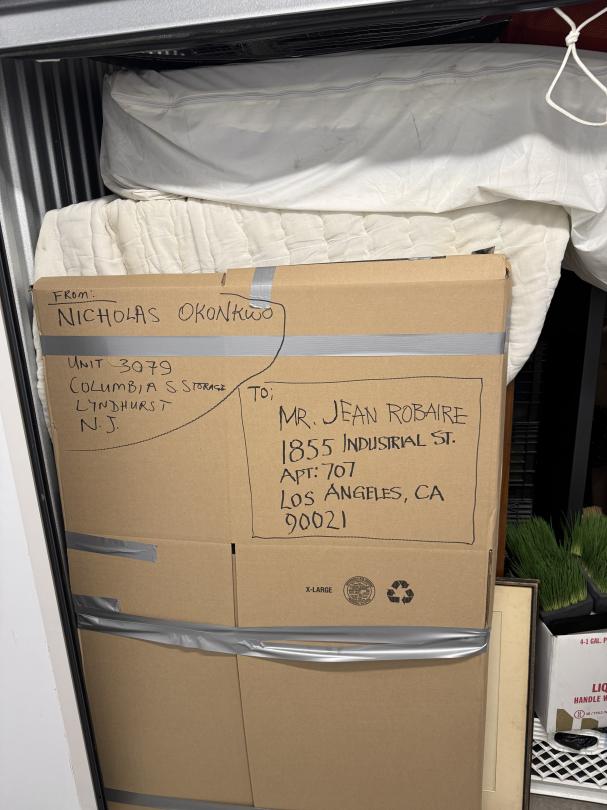 FROM:
NICHOLAS OKONKWO
UNIT 3079
COLUMBIA S STORAGE
LYNDHURST
N.J.
TO;
MR. JEAN ROBAIRE
1855 INDUSTRIAL ST.
APT: 707
LOS ANGELES, CA
90021
X-LARGE
4-1 GAL.
HANDLE